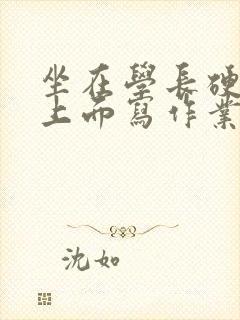 坐在學長硬
上而寫作業
沈如